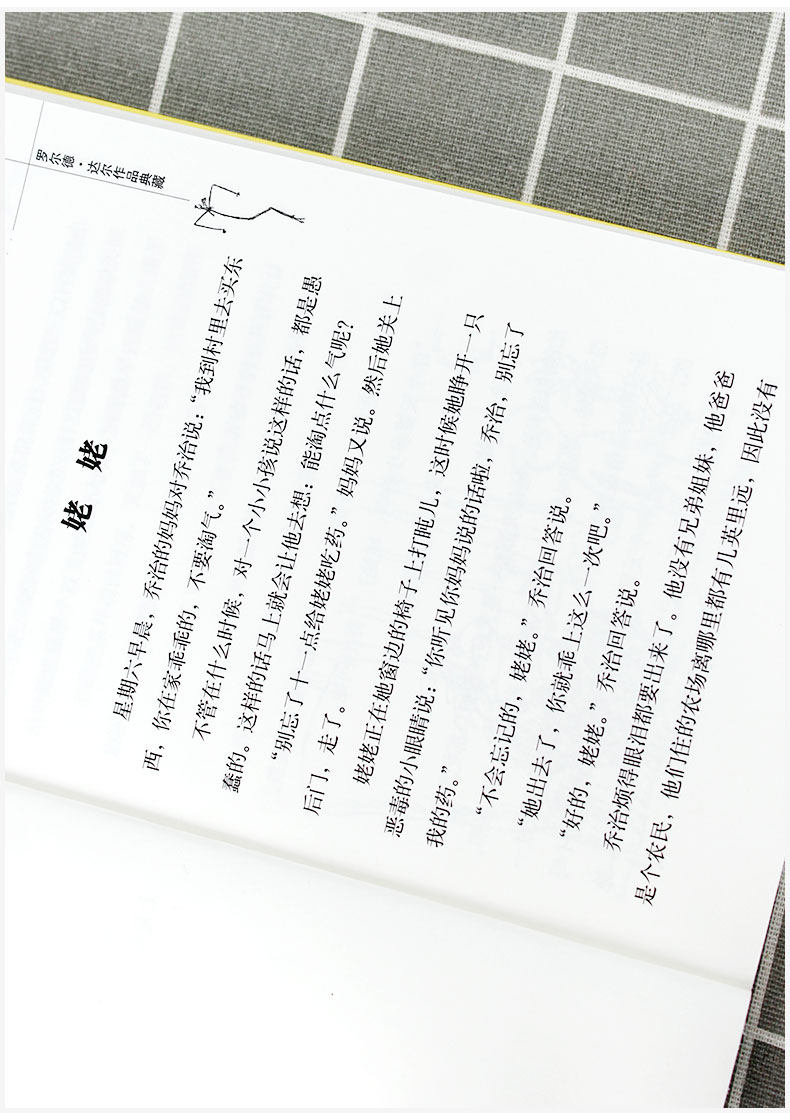 罗尔德·达尔作品典藏
姥 姥
星期六早晨，乔治的妈妈对乔治说：“我到村里去买东
西，你在家乖乖的，不要淘气。”
不管在什么时候，对一个小小孩说这样的话，都是愚
蠢的。这样的话马上就会让他去想：能淘点什么气呢？
“别忘了十一点给姥姥吃药。”妈妈又说。然后她关上
后门，走了。
姥姥正在她窗边的椅子上打盹儿，这时候她睁开一只
恶毒的小眼睛说：“你听见你妈妈说的话啦，乔治，别忘了
我的药。”
“不会忘记的，姥姥。”乔治回答说。
“她出去了，你就乖上这么一次吧。”
“好的，姥姥。”乔治回答说。
乔治烦得眼泪都要出来了。他没有兄弟姐妹，他爸爸
是个农民，他们住的农场离哪里都有几英里远，因此没有